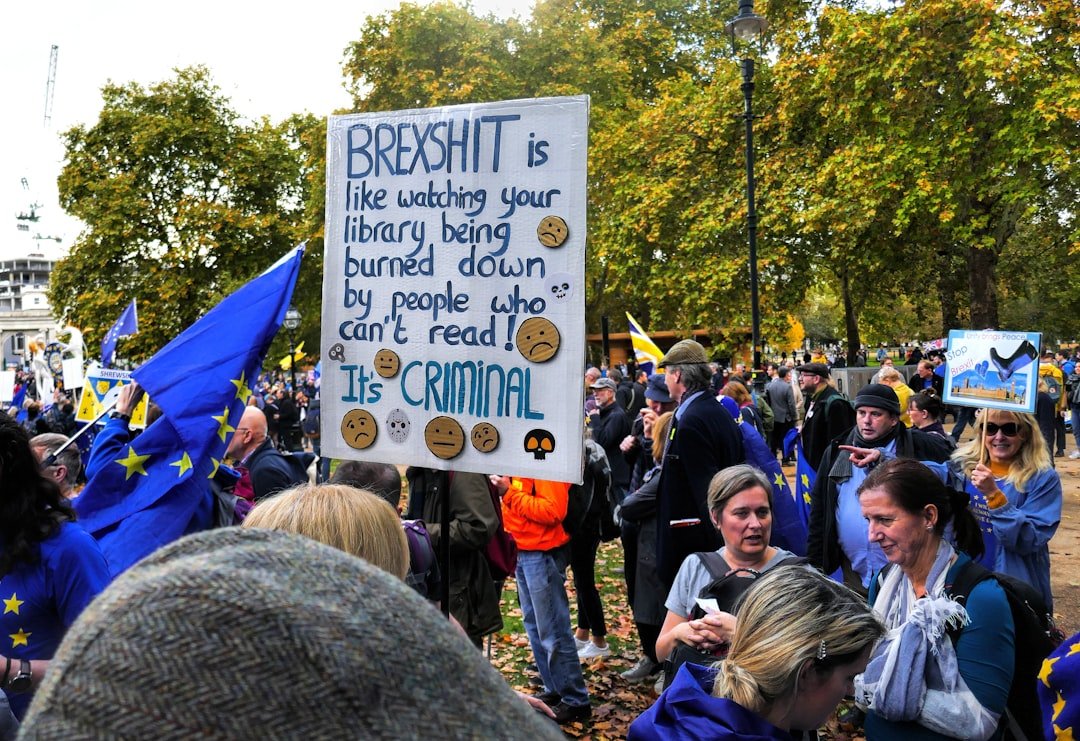 BREXSHIT is
like watching your
library being
burned down
by people who
can't read!
It's CRIMINAL
SHREWSB
Unity brings Peace
Stop
Brexit